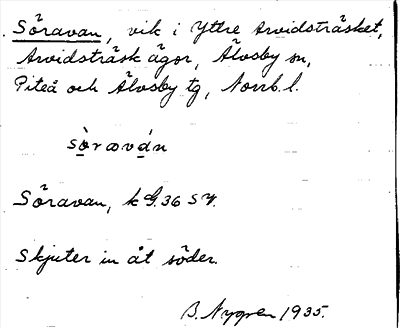 Söravan, vik i Yttre Arvidsträsket,
Arvidsträsk ägor, Älvsby sn,
Piteå och Älvsby tg, Norrb. l.
sòraván
Söravan, k G.36 SV.
Skjuter in åt söder.
B. Nygren 1935.